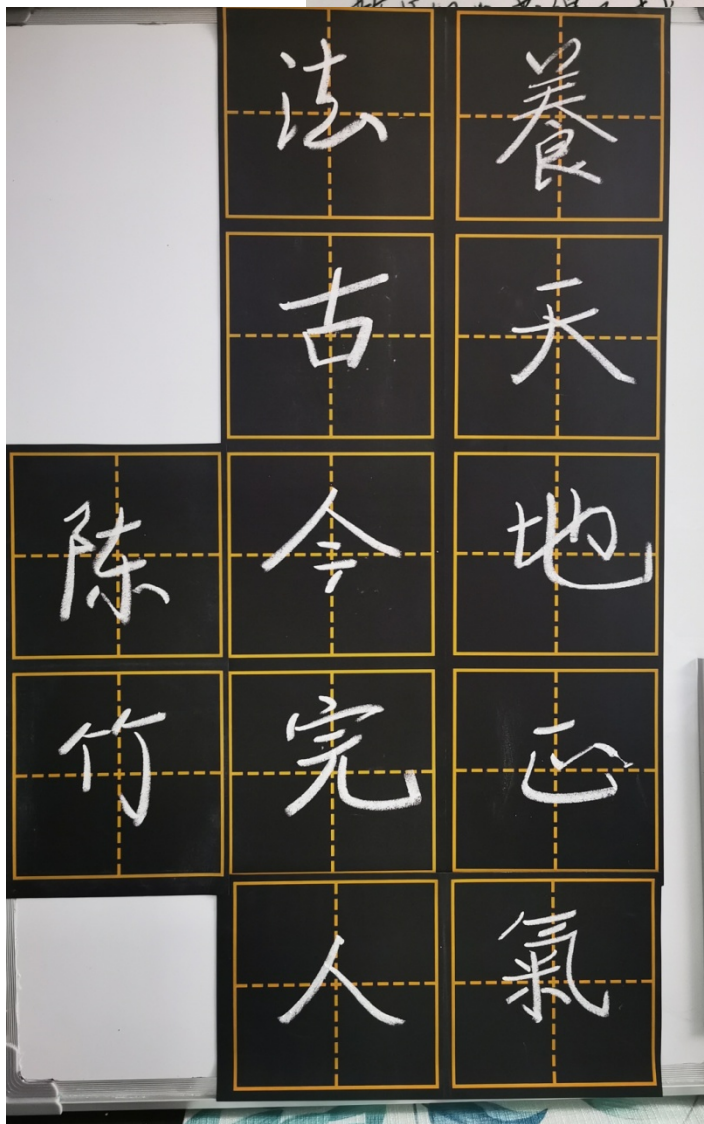 養天地正氣
法古今完人
陈竹